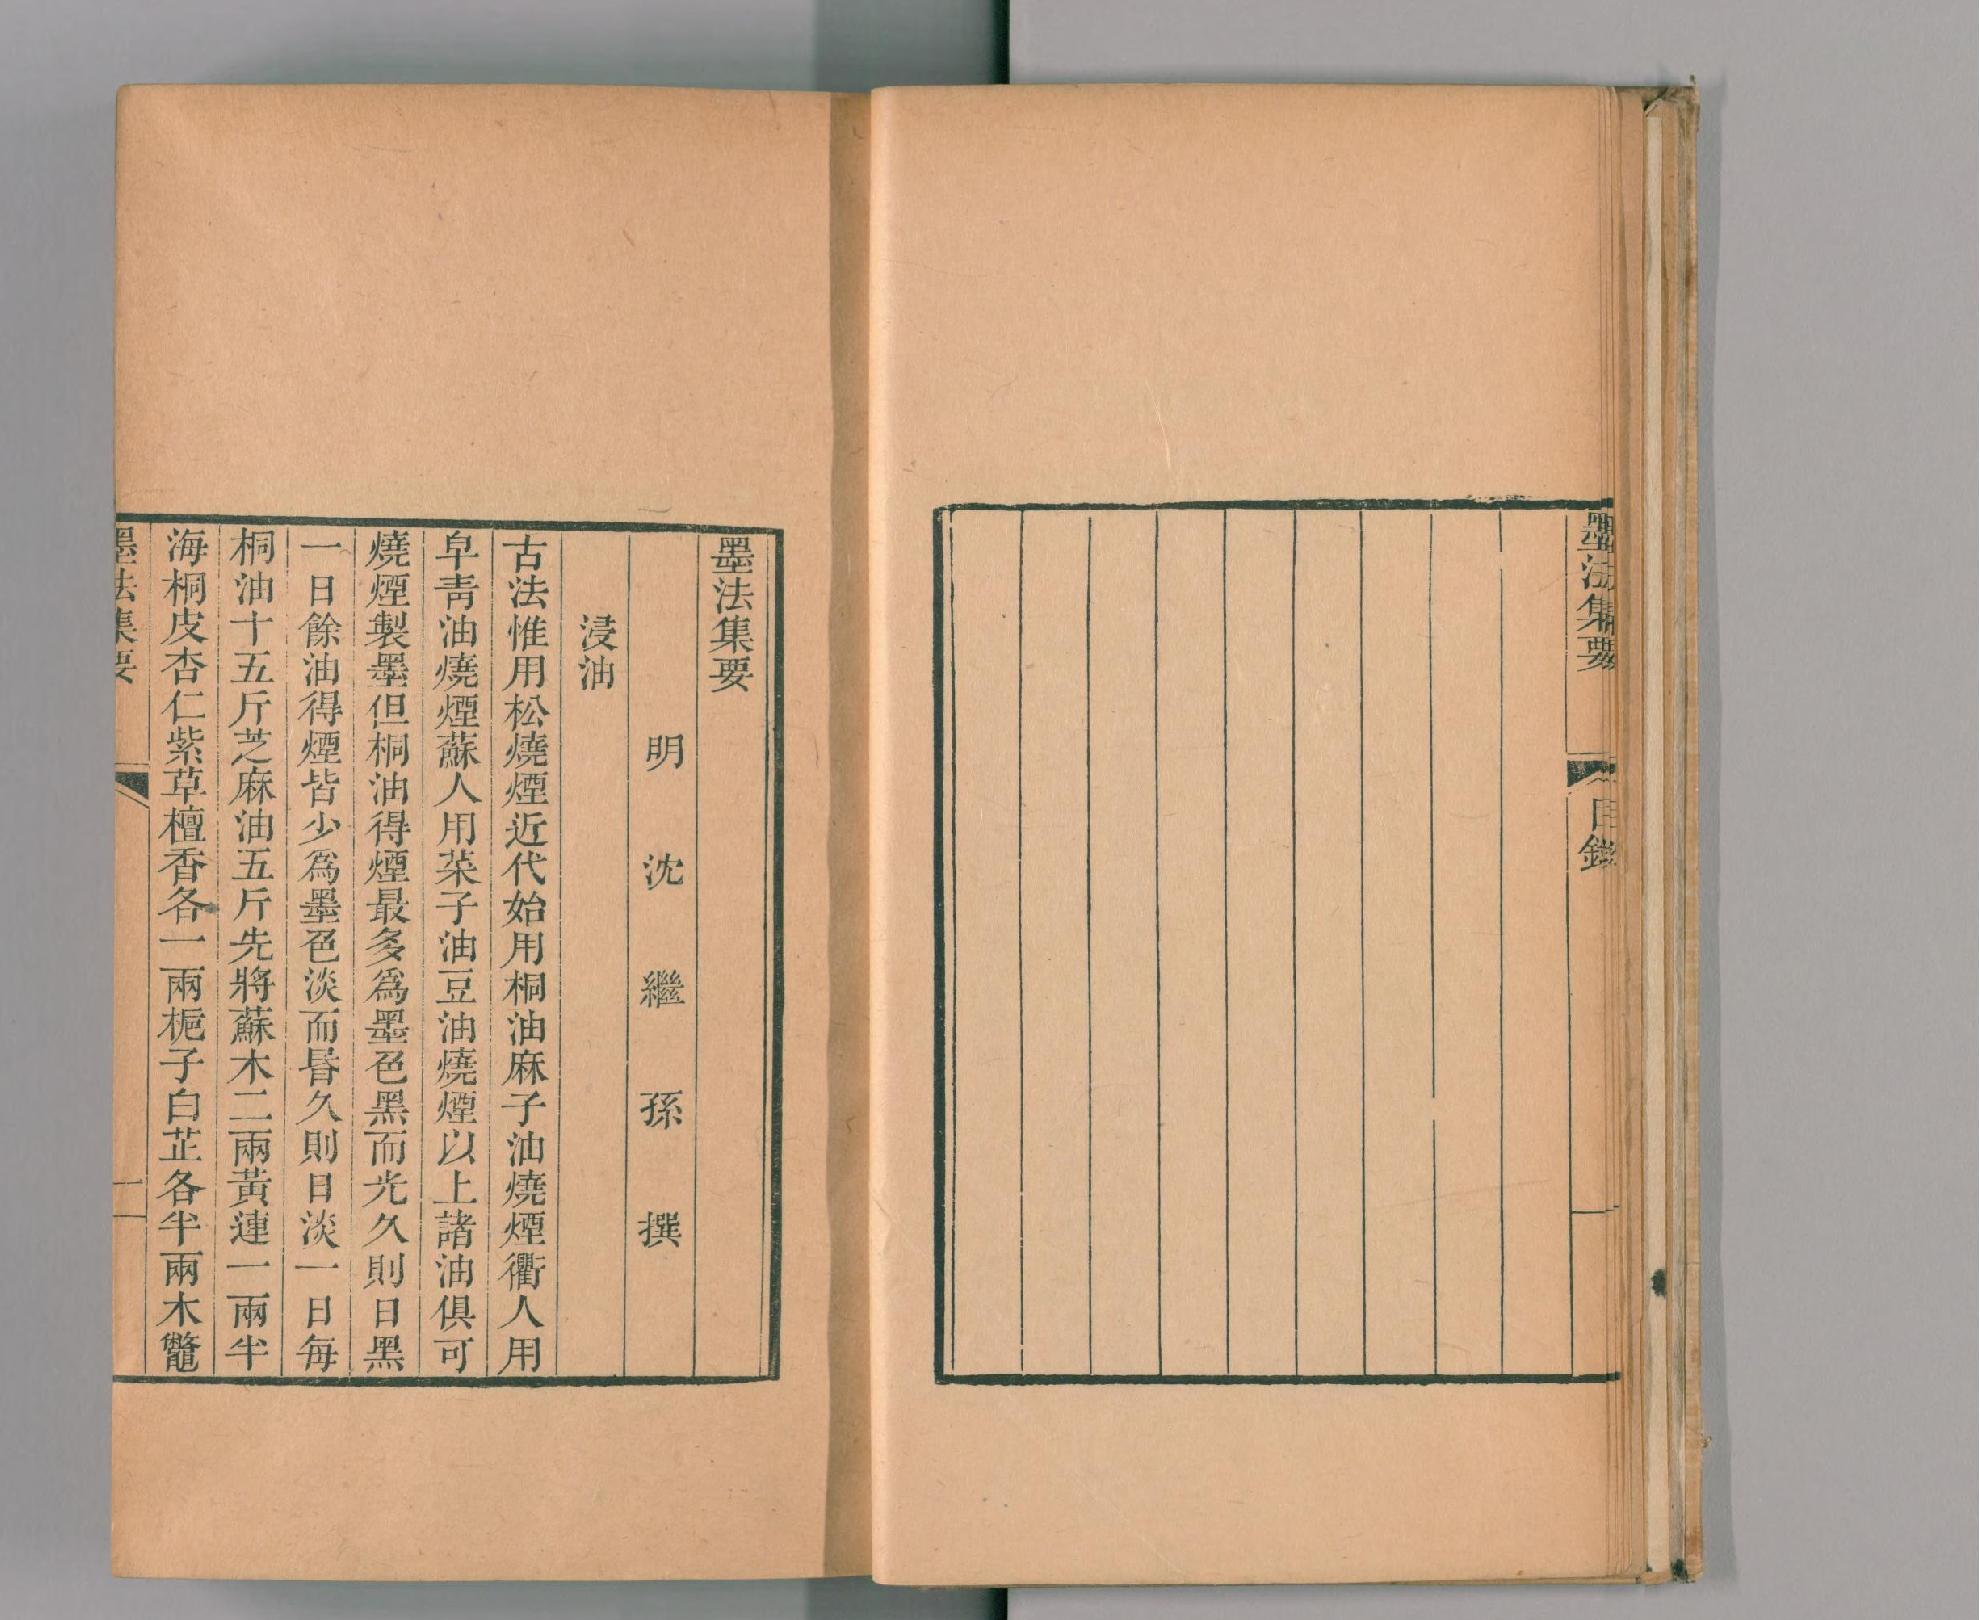 墨法集要
目錄
墨法集要
明沈繼孫撰
浸油
古法惟用松燒煙近代始用桐油麻子油燒煙衢人用
皁青油燒煙蘇人用菜子油豆油燒煙以上諸油俱可
燒煙製墨但桐油得煙最多爲墨色黑而光久則日黑
一日餘油得煙皆少爲墨色淡而昬久則日淡一日每
桐油十五斤芝麻油五斤先將蘇木二兩黃連一兩半
海桐皮杏仁紫草檀香各一兩梔子白芷各半兩木鼈
墨法集要
一